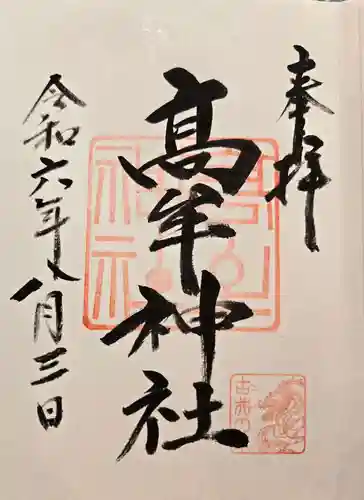 奉拝
高牟神社
令和六年八月三日